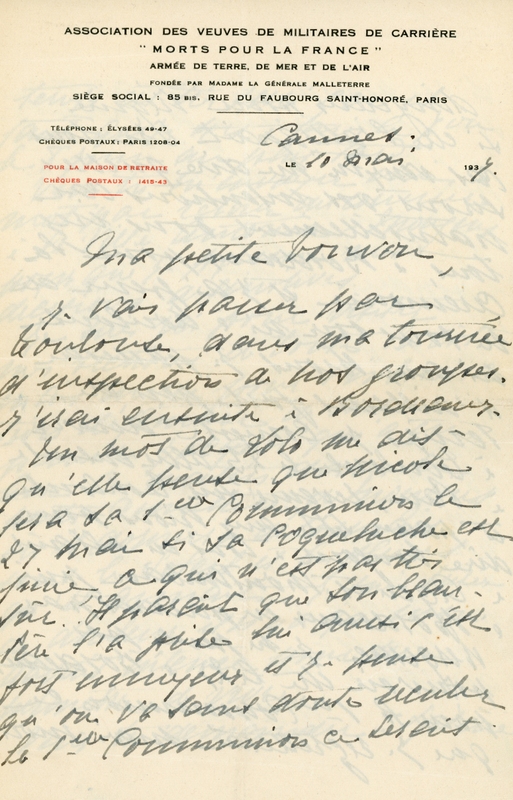 ASSOCIATION DES VEUVES DE MILITAIRES DE CARRIÈRE
" MORTS POUR LA FRANCE "
ARMÉE DE TERRE, DE MER ET DE L'AIR
FONDÉE PAR MADAME LA GÉNÉRALE MALLETERRE
SIÈGE SOCIAL : 85 BIS, RUE DU FAUBOURG SAINT-HONORÉ, PARIS
TÉLÉPHONE : ÉLYSÉES 49-47
CHÈQUES POSTAUX : PARIS 1208-04
POUR LA MAISON DE RETRAITE
CHÈQUES POSTAUX : 1415-43
Cannes.
LE 10 Mai 193
Ma petite
Je vais passer par
Toulouse, dans ma tournée
d'inspection de nos groupes.
J'irai ensuite à Bordeaux.
Un mot de Lolo me dit
qu'elle pense que Nicole
fera sa 1ère Communion le
27 mai si sa Coqueluche est
finie, ce qui n'est pas très
sûr. Il paraît que son beau-
père l'a prise lui aussi c'est
fort ennuyeux et je pense
qu'on va sans doute reculer
la 1ère Communion ce serait